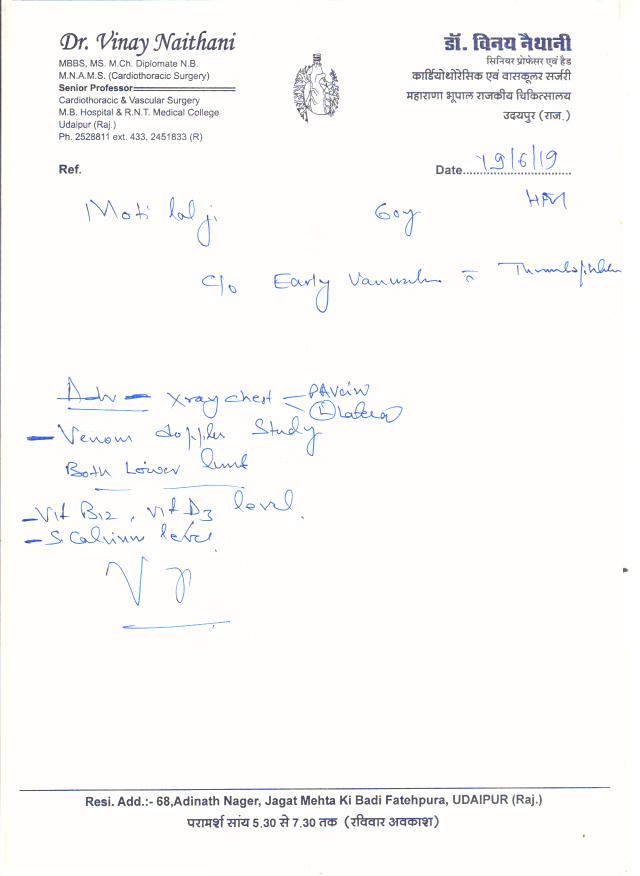 Dr. Vinay Naithani
MBBS, MS. M.Ch. Diplomate N.B.
M.N.A.M.S. (Cardiothoracic Surgery)
Senior Professor
Cardiothoracic & Vascular Surgery
M.B. Hospital & R.N.T. Medical College
Udaipur (Raj.)
Ph. 2528811 ext. 433, 2451833 (R)
डॉ. विनय नैथानी
सिनियर प्रोफेसर एवं हैड
कार्डियोथोरेसिक एवं वासकूलर सर्जरी
महाराणा भूपाल राजकीय चिकित्सालय
उदयपुर (राज.)
Ref.
Date 19/6/19
Moti lal ji 60y
c/o Early
Adv - Xray chest - PA View
(L) Lateral
- Venous doppler Study
Both Lower limb
- Vit B12, Vit D3 level
- S. Calcium level
Resi. Add.:- 68,Adinath Nager, Jagat Mehta Ki Badi Fatehpura, UDAIPUR (Raj.)
परामर्श सांय 5.30 से 7.30 तक (रविवार अवकाश)